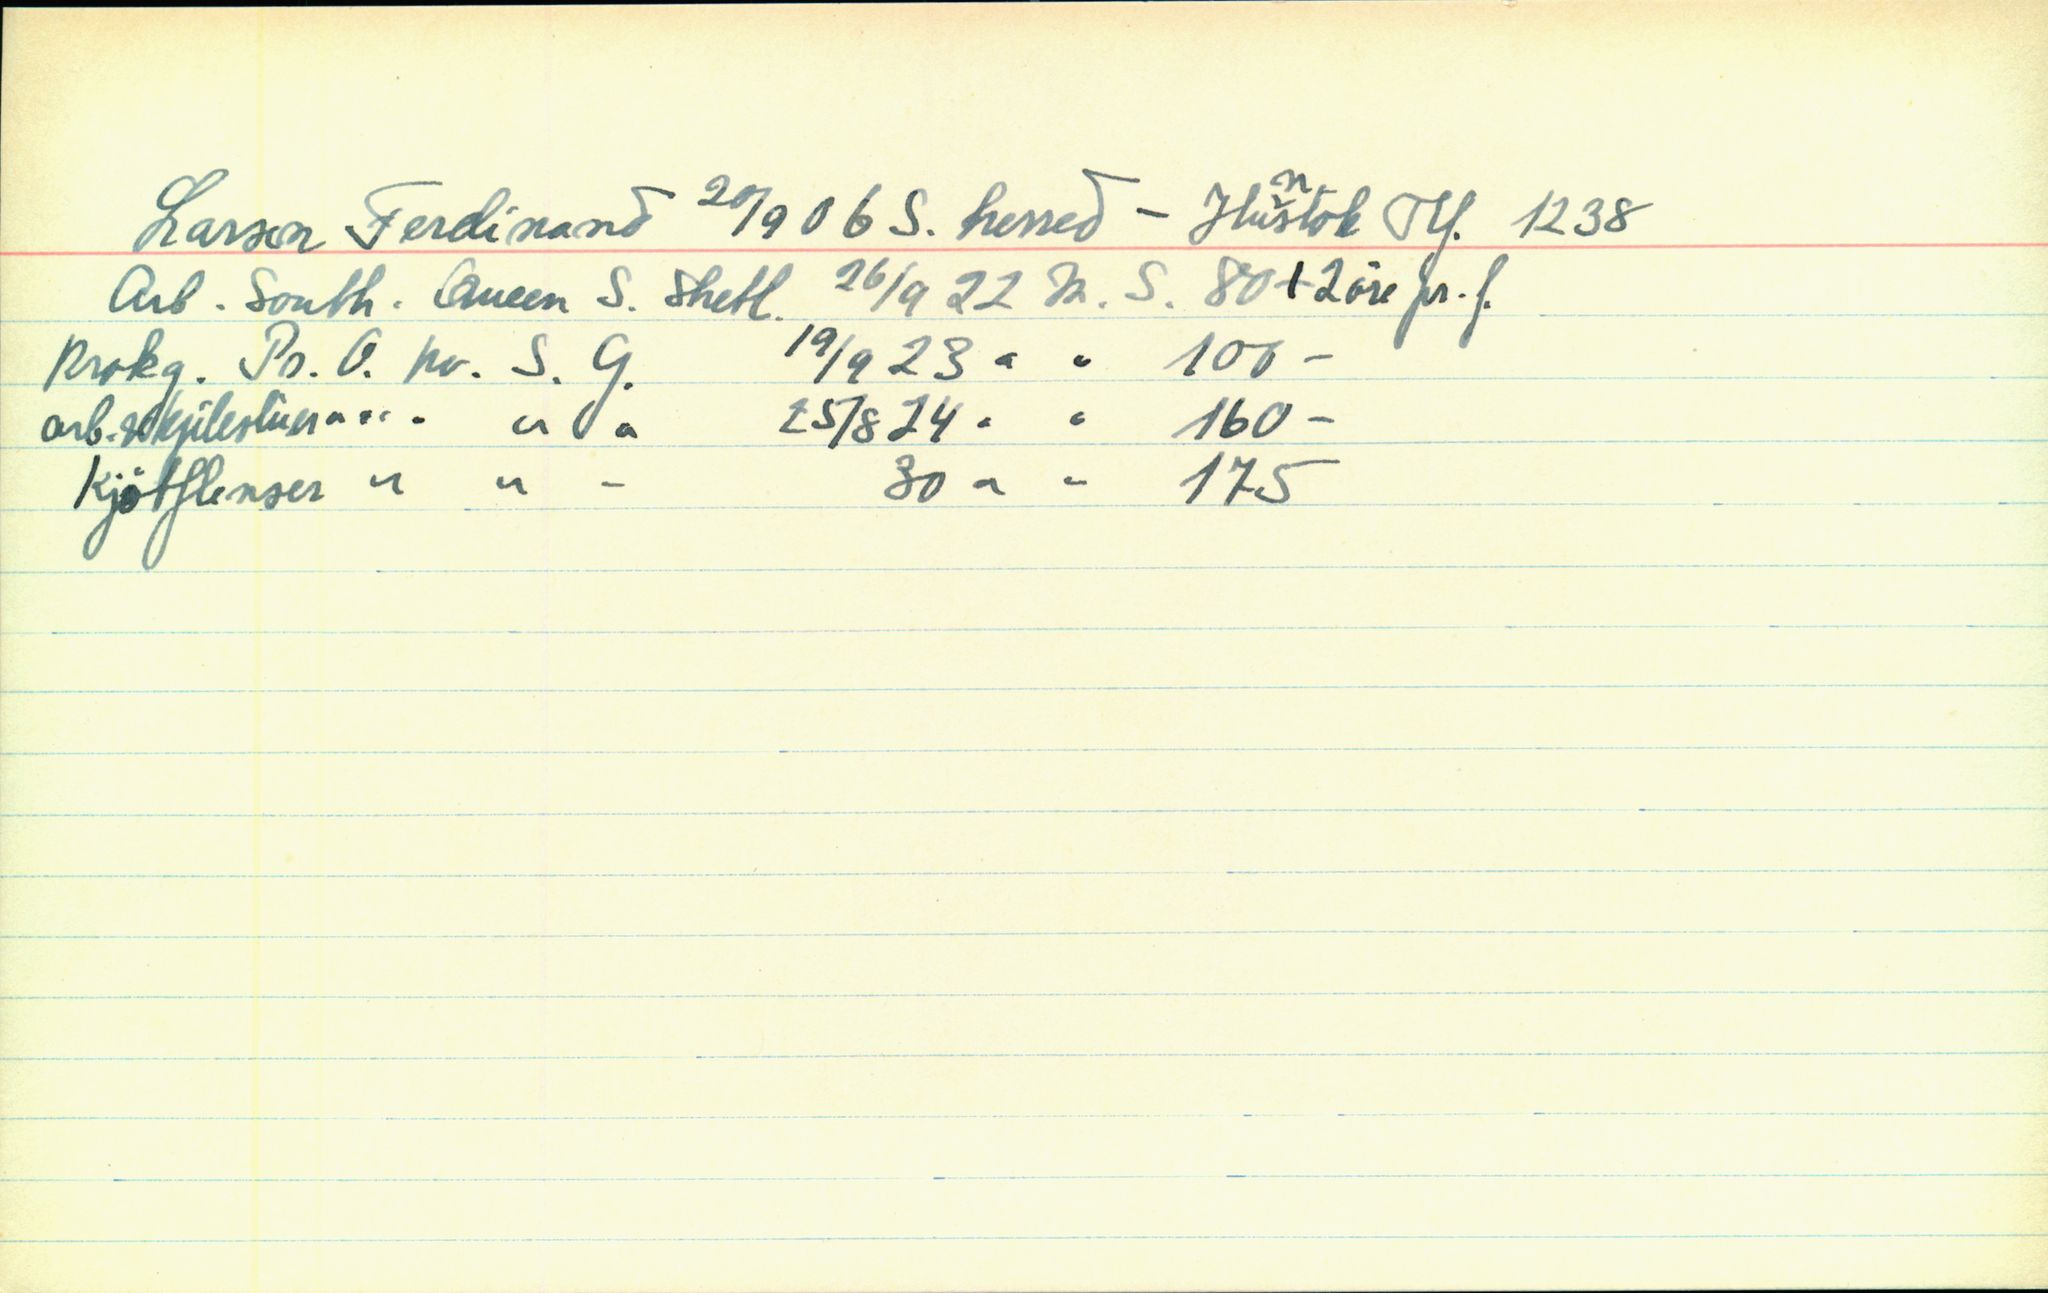 Larsen Ferdinand 20/9 06 S. herred - Tlf. 1238
Arb. South. Queen S. Shetl. 26/9 22 N. S. 80 + 2 öre pr. f.
Krokg. Pr. O. kv. S. G. 19/9 23 " " 100 -
arb. " " " " 25/8 24 " " 160 -
Kjötflenser " " - 30 " " 175